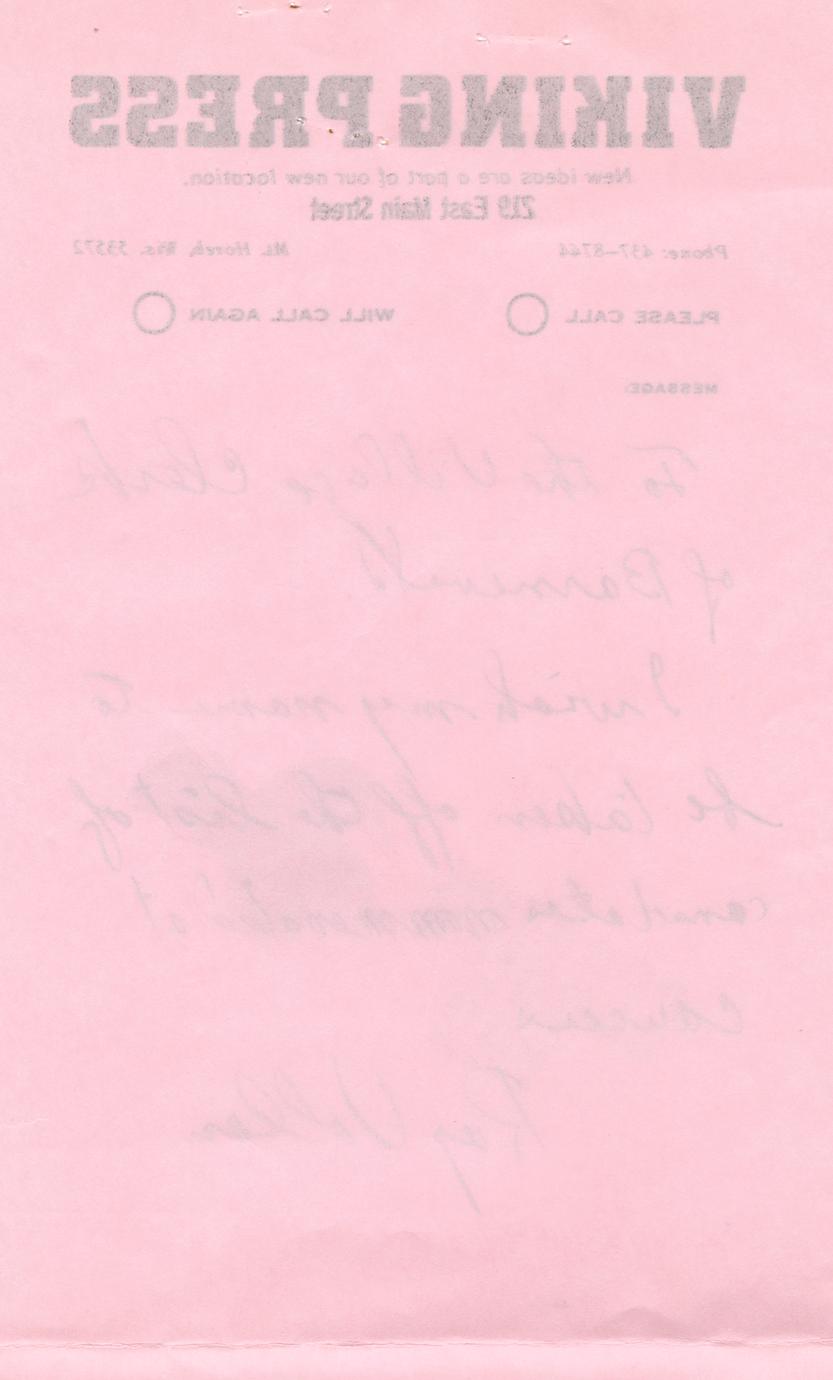 VIKING PRESS
New ideas are a part of our new location.
219 East Main Street
Phone: 437-8744 Mt. Horeb, Wis. 53572
PLEASE CALL WILL CALL AGAIN
MESSAGE:
To the Village Clerk
of Barneveld
I wish my name to
be taken off the list of
canidates nommenated at
caucus
Ray Walden